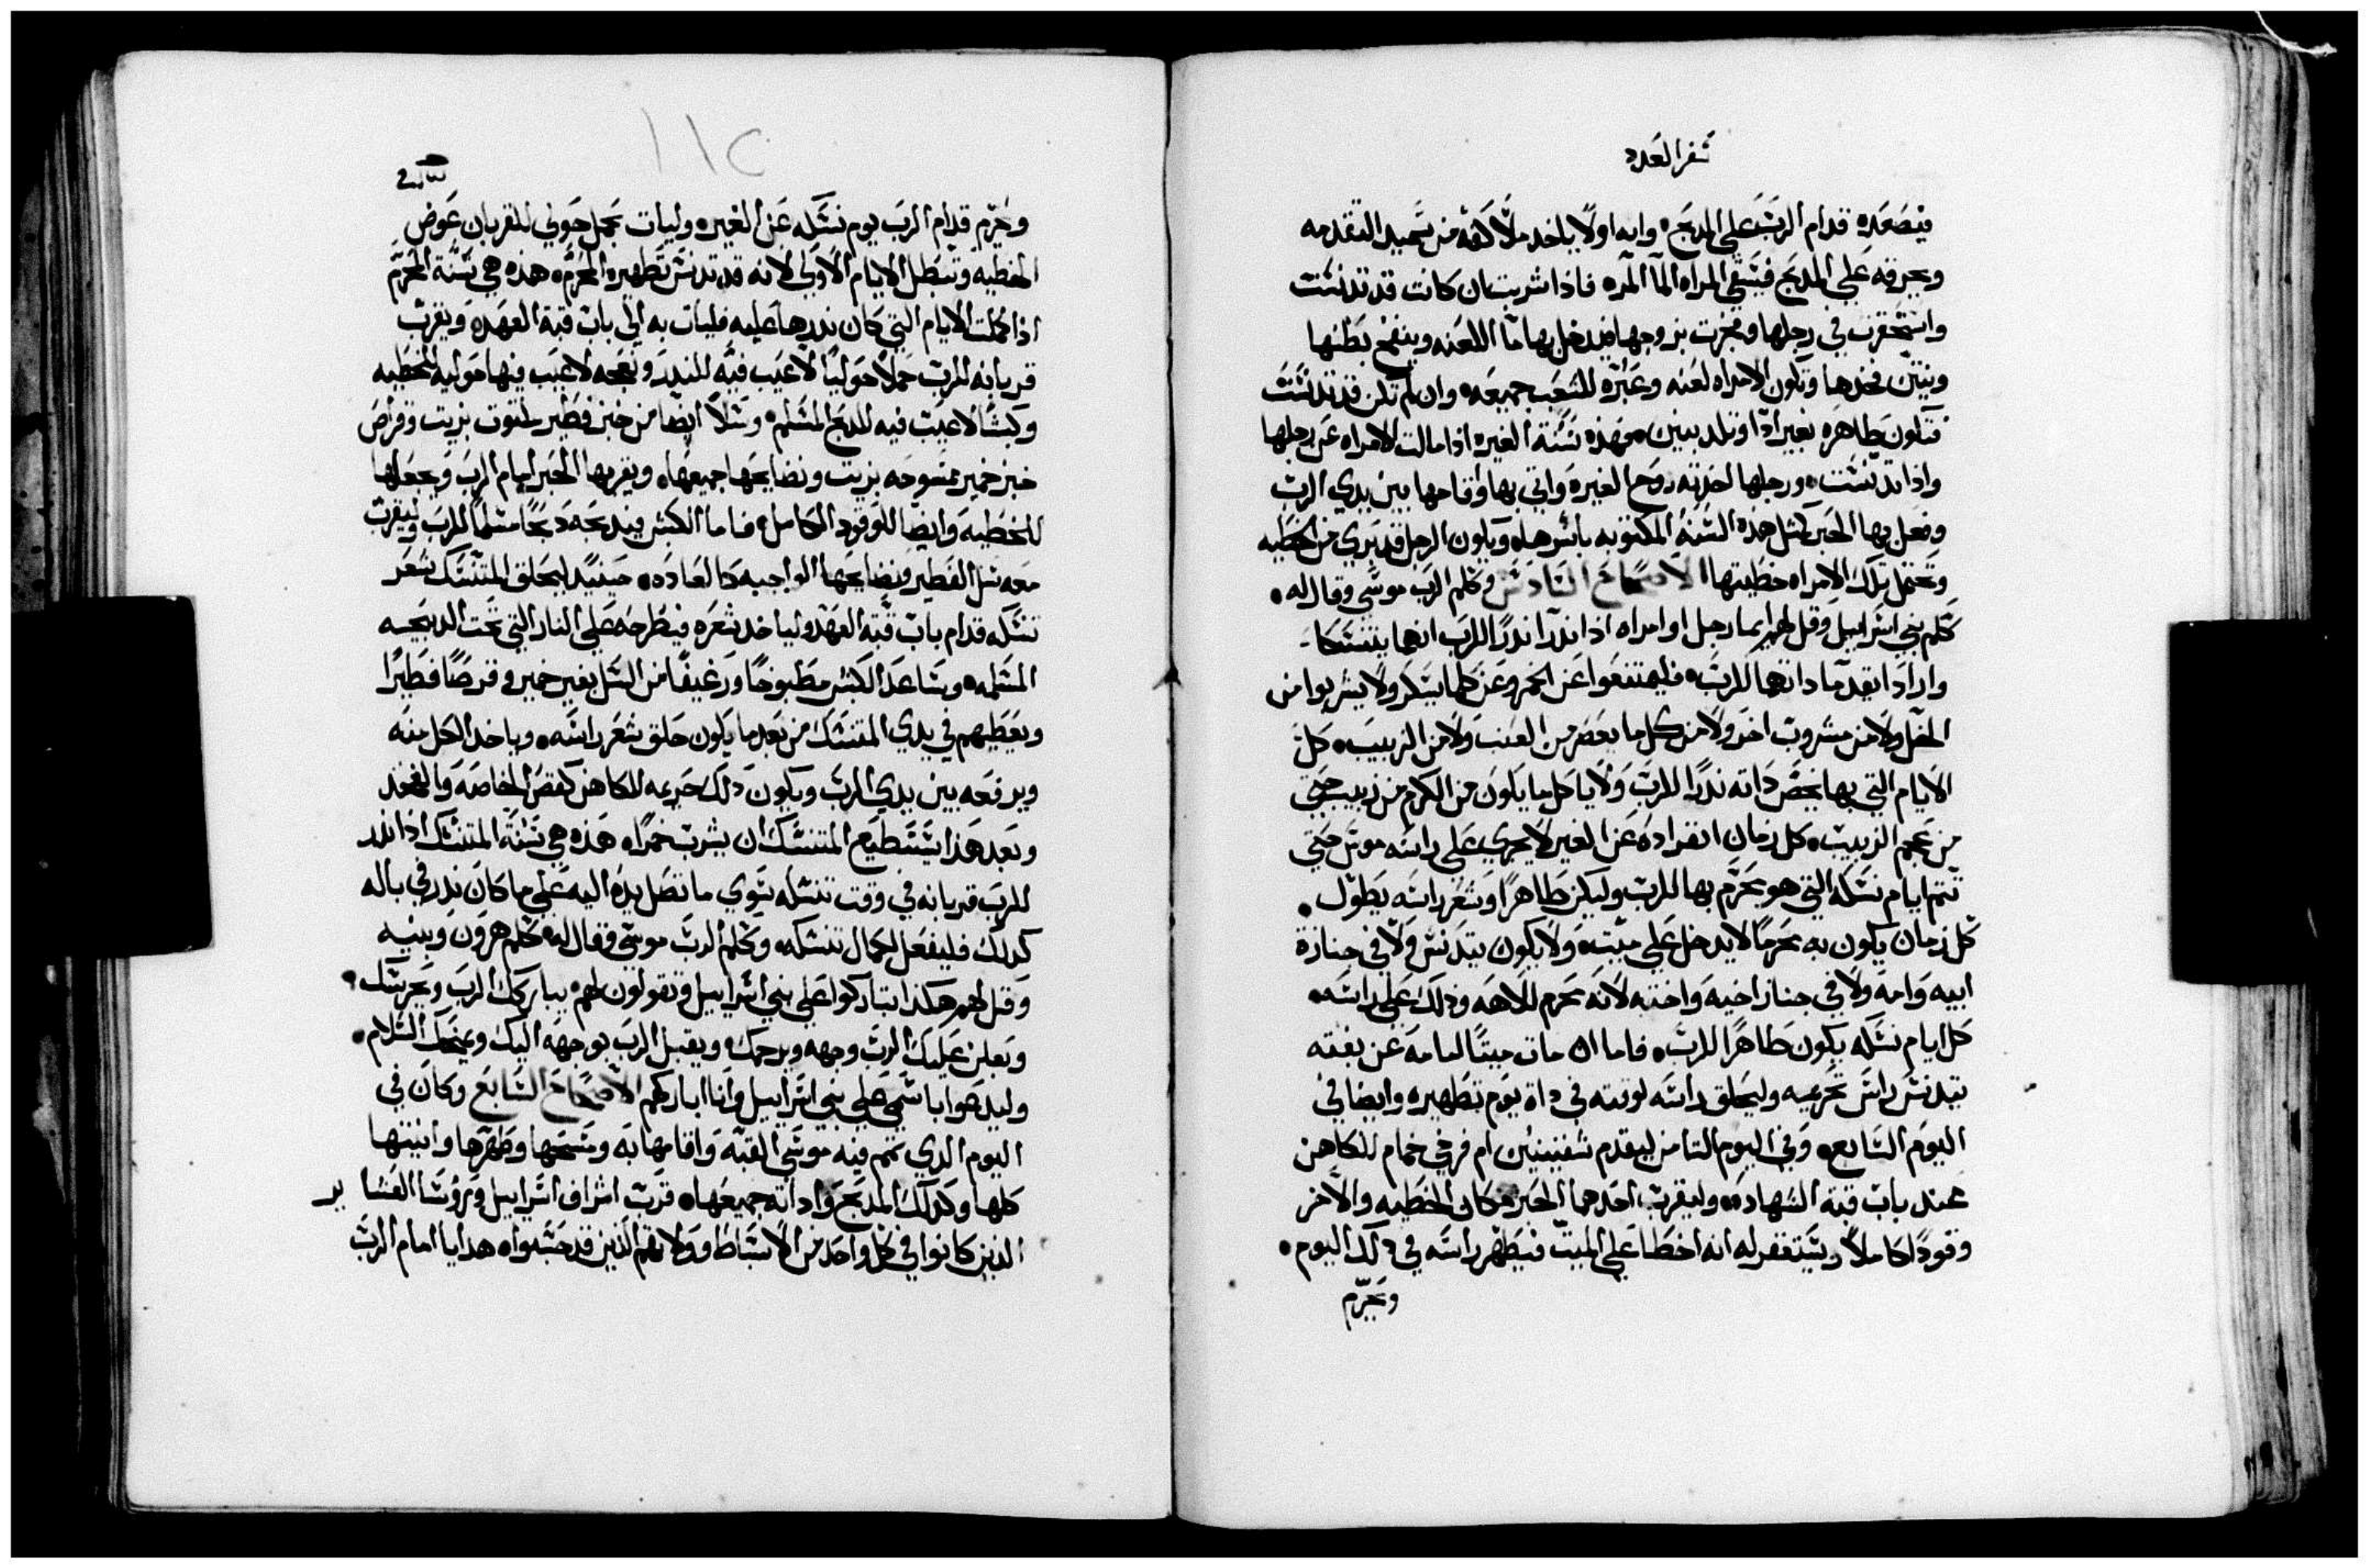 سفر العدد
فيصعده قدام الرب على المدبح وانه اولاً ياخد ملا كفه من سميد التقدمه
ويحرقه على المدبح فيسقي المراه الما المره فاذا شربت ان كانت قد تدنست
واستحقرت في رجلها وفجرت بزوجها فيدخل بها ما اللعنه وينفخ بطنها
وينتن فخدها وتكون الامراه لعنه وعبره للشعب جميعه وان لم تكن قد تدنست
فتكون طاهره بغير ادا وتلد بنين فهذه سنة الغيره اذا مالت الامراه عن رجلها
واذا تدنست ورجلها اخدته روح الغيره واتي بها واقامها بين يدي الرب
وفعل بها الحبر كمثل هذه السنه المكتوبه باسرها ويكون الرجل قد بري من الخطيه
وتحتمل تلك الامراه خطيتها الاصحاح السادس وكلم الرب موسى وقال له
كلم بني اسراييل وقل لهم ايما رجل او امراه اذا اندرا ندرًا للرب انهما يتنسكا
وارادا يقدما داتهما للرب فليمتنعوا عن الخمر وعن كلما يسكر ولا يشربوا من
الخل ولا من مشروب اخر ولا من كل ما يعصر من العنب ولا من الزبيب كل
الايام التي بها يخص داته ندرًا للرب ولا ياكل ما يكون من الكرم من زبيب حتي
من عجم الزبيب كل زمان انفراده عن الغير لا يجري على راسه موس حتي
تتم ايام نسكه التي هو محرم بها للرب وليكن طاهرًا وشعر راسه يطول
كل زمان يكون به محرمًا لا يدخل على ميت ولا يكون يتدنس ولا في جنازة
ابيه وامه ولا في جناز اخيه واخته لانه محرم للاهه وذلك على راسه
كل ايام نسكه يكون طاهرًا للرب فاما ان مات ميتًا امامه عن بغته
تيدنس راس تحريمه وليحلق راسه لوقته في داة يوم تطهيره وايضا في
اليوم السابع وفي اليوم التامن ليقدم شفنينين ام فرخي حمام للكاهن
عند باب قبة الشهاده وليقرب احدهما الحبر مكان الخطيه والاخر
وقودًا كاملاً ويستغفر له انه اخطا على الميت فيطهر راسه في ذلك اليوم
ويحرم
١١٢
ويحرم قدام الرب يوم نسكه عن الغيره وليات بحمل حولي للقربان عوض
الخطيه وتبطل الايام الاولي لانه قد تدنس تطهيره المحرم هذه هي سنة المحرم
اذا كملت الايام التي كان ندرها عليه فليات به الى باب قبة العهده ويقرب
قربانه للرب حملاً حوليًا لا عيب فيه للندر ونعجه لا عيب فيها حوليه للخطيه
وكبشًا لا عيب فيه للدبح المسلم وسلاً ايضا من خبز فطير ملتوت بزيت وقرص
خبز خمير ممسوحه بزيت ونضايحها جميعها ويقربها الحبر امام الرب ويجعلها
للخطيه وايضا للوقود الكامل فاما الكبش فيدبحه دبحًا مسلمًا للرب وليقرب
معه سل الفطير ونضايحها الواجبه كالعاده حينيد ليحلق المتنسك شعر
نسكه قدام باب قبة العهد ولياخد شعره فيطرحه على النار التي تحت الدبيحه
المسلمه وساعد الكبش مطبوخًا ورغيفًا من السل بغير خمير وقرصًا فطيرًا
ويعطيهم في يدي المتنسك من بعد ما يكون حلق شعر راسه وياخد الكل منه
ويرفعه بين يدي الرب ويكون ذلك حريمه للكاهن كقص الخاصه والفخد
وبعد هذا يستطيع المتنسك ان يشرب خمرًا هذه هي سنة المتنسك اذا ندر
للرب قربانه في وقت تنسكه سوي ما تصل يده اليه على ما كان ندر في باله
كدلك فليفعل لكمال تنسكه وكلم الرب موسى وقال له كلم هرون وبنيه
وقل لهم هكذا تباركوا على بني اسراييل وتقولون لهم يباركك الرب ويحرسك
ويعلن عليك الرب وجهه ويرحمك ويقبل الرب بوجهه اليك ويمنحك السلام
وليدعوا باسمي على بني اسراييل وانا اباركهم الاصحاح السابع وكان في
اليوم الدي تمم فيه موسى القبه واقامها به ومسحها وطهرها وانيتها
كلها وكدلك المدبح واداته جميعها قرب اشراف اسراييل وروسا العشاير
الذين كانوا في كل واحد من الاسباط وولاتهم الذين قد حسبواه هدايا امام الرب